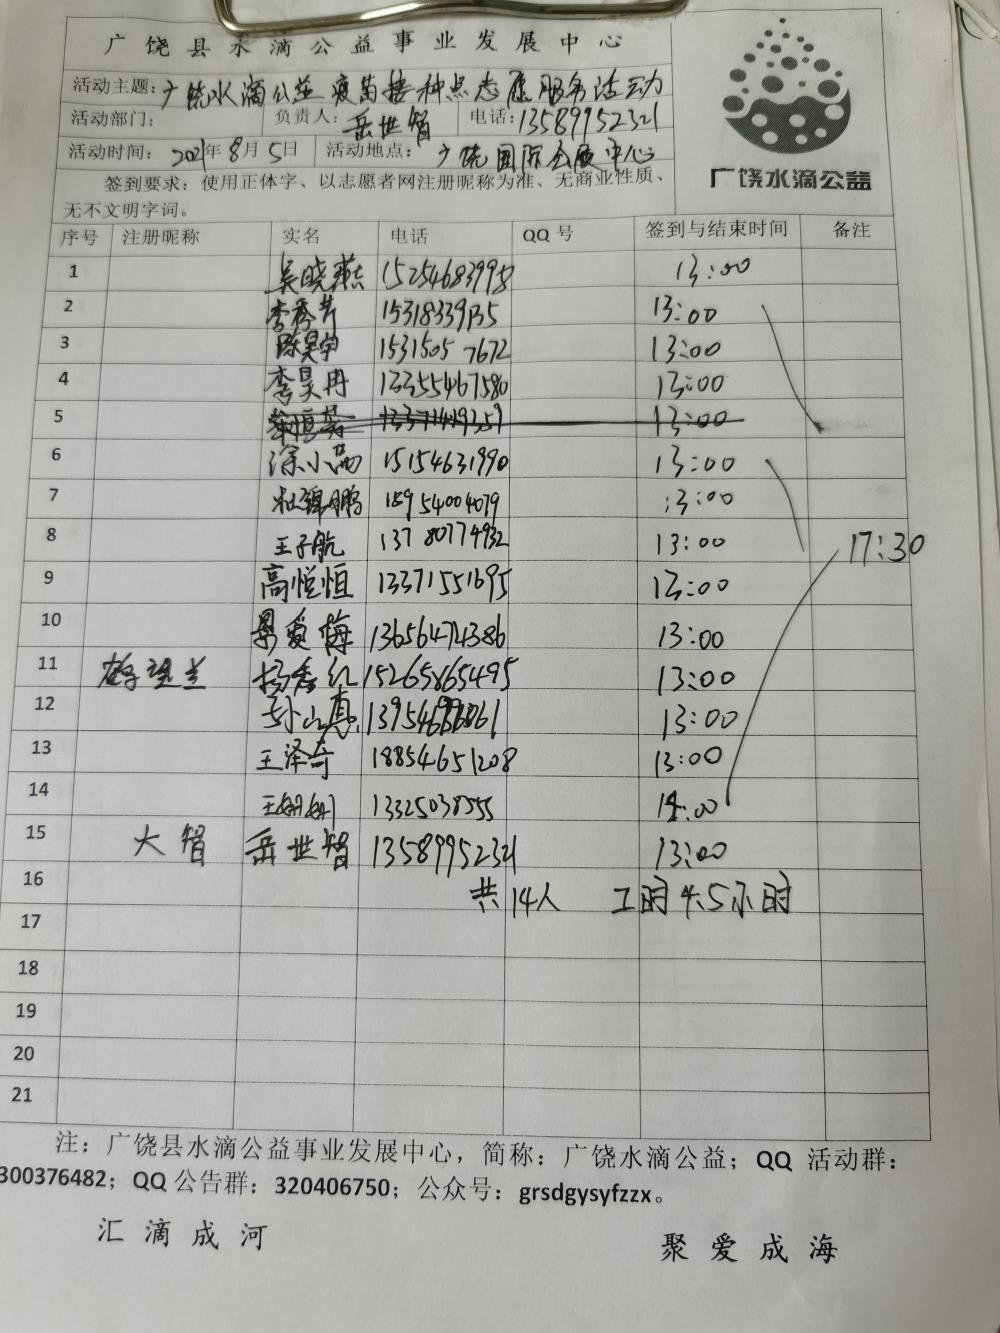 广饶县水滴公益事业发展中心
活动主题：广饶水滴公益疫苗接种点志愿服务活动
活动部门： 负责人：岳世智 电话：13589952321
活动时间：2021年8月5日 活动地点：广饶国际会展中心
广饶水滴公益
签到要求：使用正体字、以志愿者网注册昵称为准、无商业性质、
无不文明字词。
序号 注册昵称 实名 电话 QQ号 签到与结束时间 备注
1 吴晓燕 15254683998 13:00
2 李秀芹 15318339135 13:00
3 陈昊宇 15315057672 13:00
4 李昊冉 13355467580 13:00
5 13:00
6 涂小茹 15154631990 13:00
7 杜锦鹏 18954004079 13:00
8 王子航 13780774932 13:00 17:30
9 高悦恒 13371551695 13:00
10 景爱梅 13656474386 13:00
11 鹤望兰 杨春红 15265865495 13:00
12 孙山真 13:00
13 王泽奇 18854651208 13:00
14 王娜娜 13325038555 14:00
15 大智 岳世智 13589952321 13:00
16 共14人 工时4.5小时
17
18
19
20
21
注：广饶县水滴公益事业发展中心，简称：广饶水滴公益；QQ 活动群：
300376482；QQ公告群：320406750；公众号：grsdgysyfzzx。
汇滴成河 聚爱成海